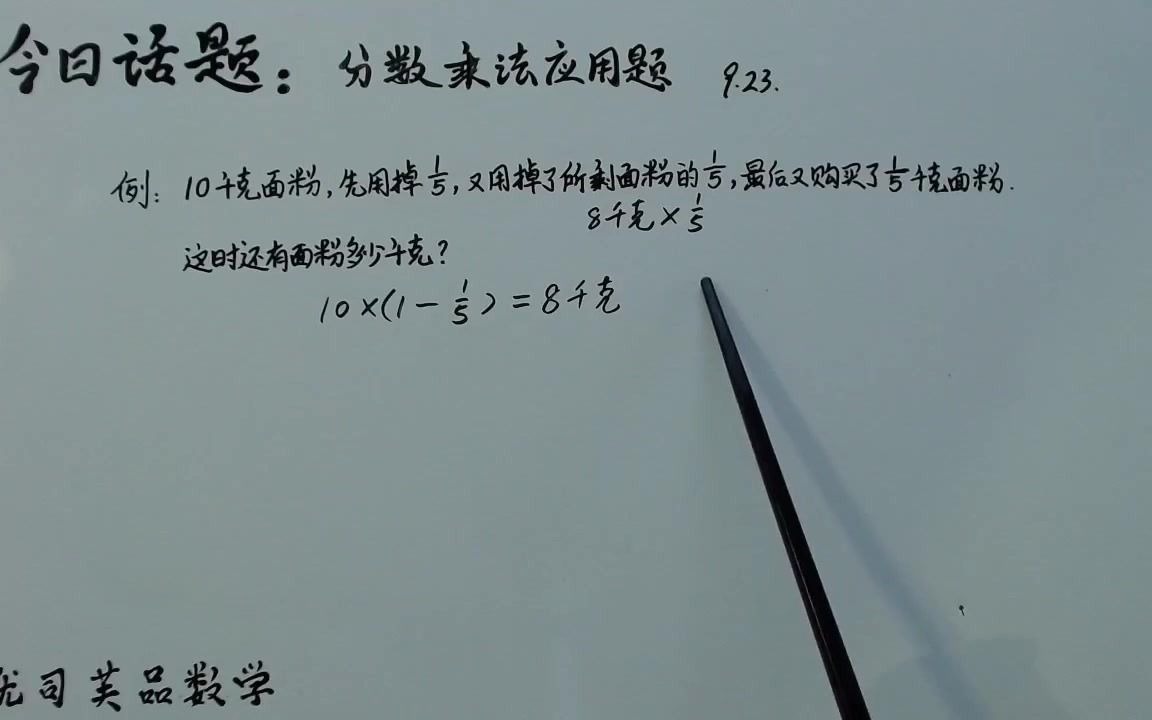 今日话题：分数乘法应用题 9.23.
例：10千克面粉，先用掉1/5，又用掉了所剩面粉的1/5，最后又购买了1/5千克面粉.
8千克×1/5
这时还有面粉多少千克？
10×(1-1/5)=8千克
司芙品数学